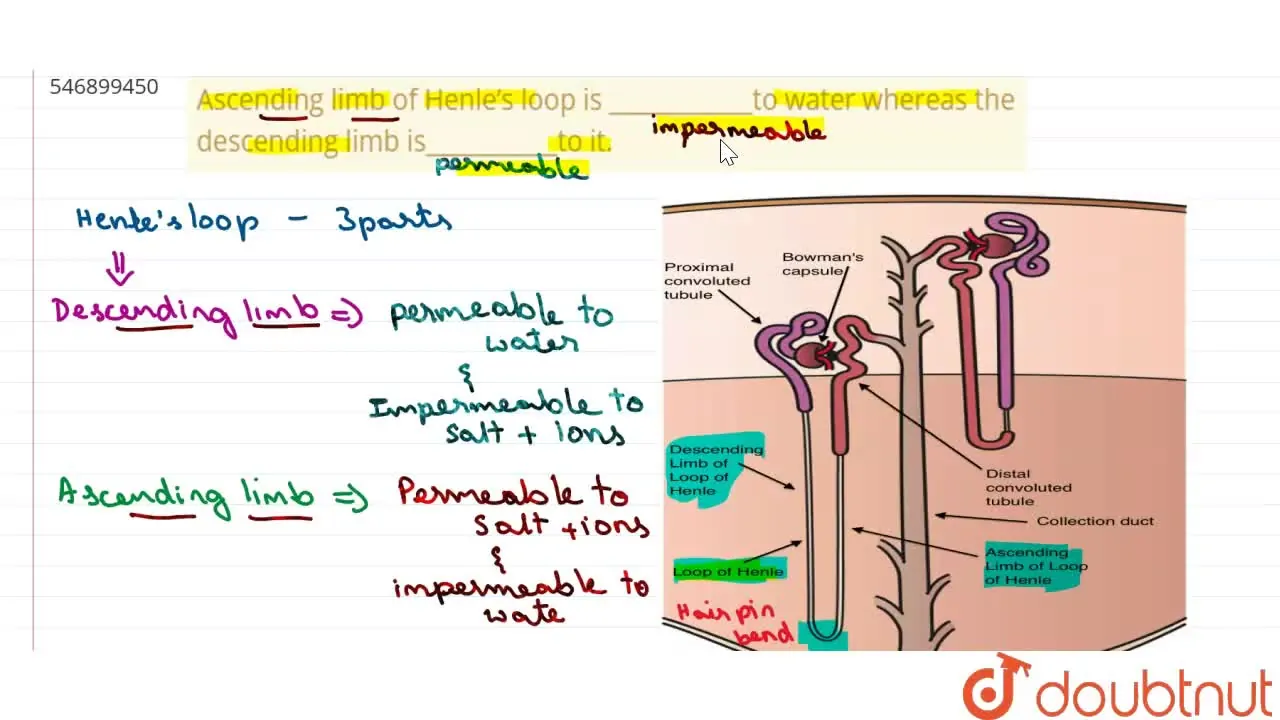 546899450
Ascending limb of Henle's loop is ____________to water whereas the
impermeable
descending limb is____________to it.
permeable
Henle's loop - 3parts
⇓
Descending limb ⇒ permeable to
water
&
Impermeable to
salt + ions
Ascending limb ⇒ Permeable to
salt + ions
&
impermeable to
wate
Proximal
convoluted
tubule
Bowman's
capsule
Descending
Limb of
Loop of
Henle
Distal
convoluted
tubule
Collection duct
Ascending
Limb of Loop
of Henle
Loop of Henle
Hair pin
bend
doubtnut